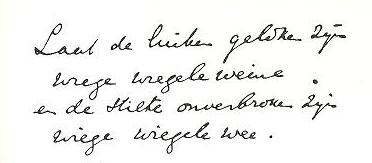 Laat de luiken geloken zijn
wiege wiegele weine
en de stilte onverbroken zijn
wiege wiegele wee.